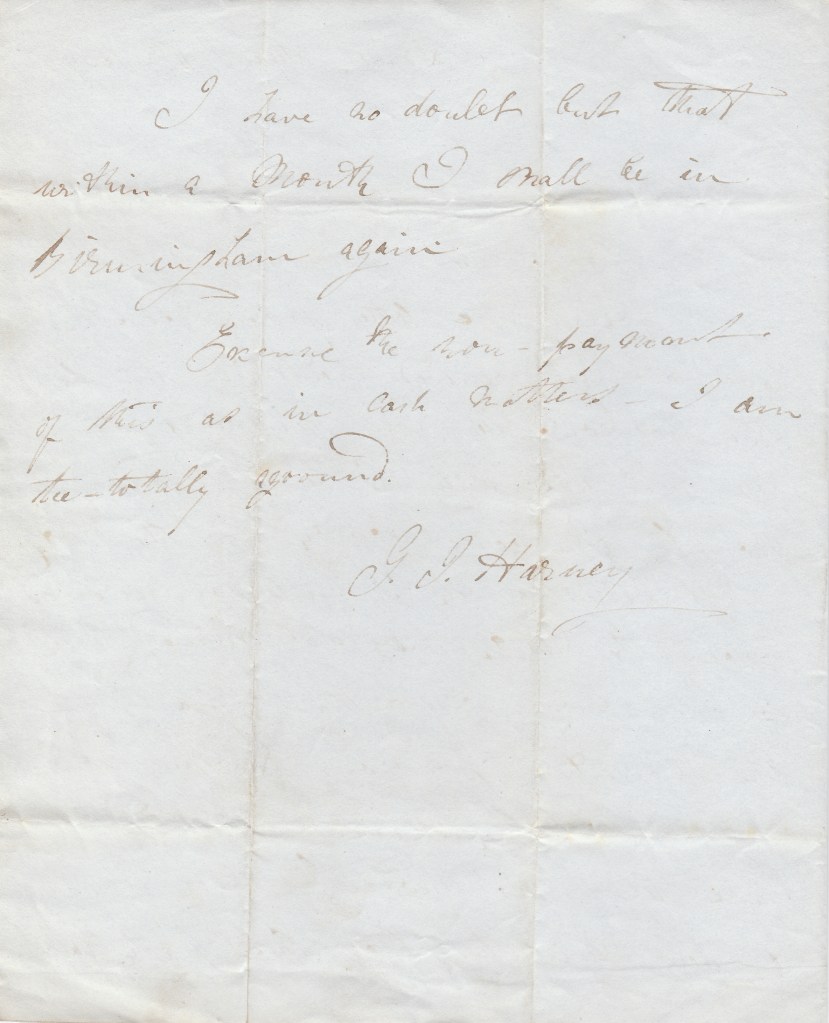 I have no doubt but that
within a Month I shall be in
Birmingham again
Excuse the non-payment
of this as in cash matters - I am
tee-totally aground.
G. J. Harney